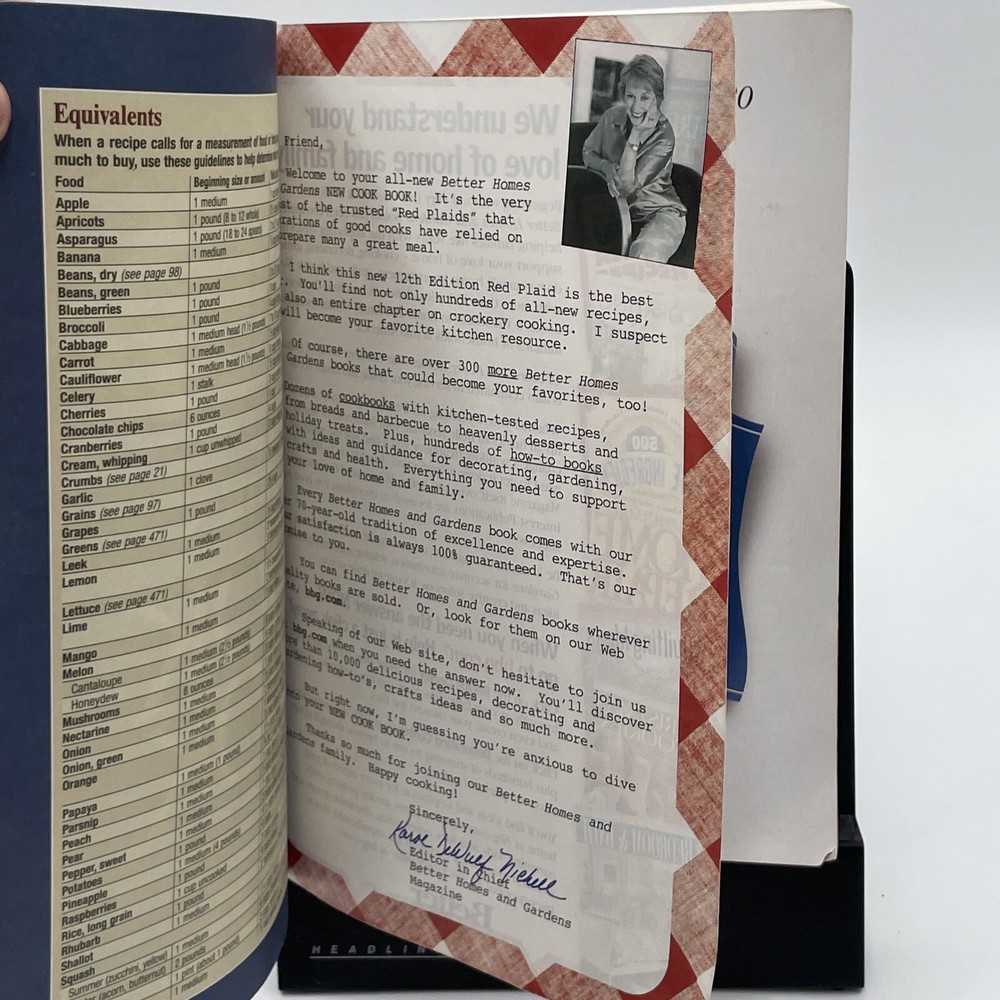 Equivalents
When a recipe calls for a measurement of food
much to buy, use these guidelines to help determine
Food
Apple
Apricots
Asparagus
Banana
Beans, dry (see page 98)
Beans, green
Blueberries
Broccoli
Cabbage
Carrot
Cauliflower
Celery
Cherries
Chocolate chips
Cranberries
Cream, whipping
Crumbs (see page 21)
Garlic
Grains (see page 97)
Grapes
Greens (see page 471)
Leek
Lemon
Lettuce (see page 471)
Lime
Mango
Melon
Cantaloupe
Honeydew
Mushrooms
Nectarine
Onion
Onion, green
Orange
Papaya
Parsnip
Peach
Pear
Pepper, sweet
Potatoes
Pineapple
Raspberries
Rice, long grain
Rhubarb
Shallot
Squash
Summer (zucchini, yellow)
(acorn, butternut)
Beginning size or amount
1 medium
1 pound (8 to 12 whole)
1 pound (18 to 24 spears)
1 medium
1 pound
1 pound
1 pound
1 medium head (1½ pounds)
1 medium
1 medium head (1½ pounds)
1 stalk
1 pound
6 ounces
1 pound
1 cup unwhipped
1 clove
1 pound
1 medium
1 medium
1 medium
1 medium
1 medium (2½ pounds)
1 medium (2½ pounds)
8 ounces
1 medium
1 medium
1 medium
1 medium (1 pound)
1 medium
1 medium
1 medium
1 pound
1 medium (4 pounds)
1 cup uncooked
1 pound
1 medium
1 medium
2 pounds
1 pint (about 1 pound)
1 medium
Friend,
Welcome to your all-new Better Homes
Gardens NEW COOK BOOK! It's the very
st of the trusted "Red Plaids" that
rations of good cooks have relied on
repare many a great meal.
I think this new 12th Edition Red Plaid is the best
. You'll find not only hundreds of all-new recipes,
also an entire chapter on crockery cooking. I suspect
will become your favorite kitchen resource.
Of course, there are over 300 more Better Homes
Gardens books that could become your favorites, too!
Dozens of cookbooks with kitchen-tested recipes,
from breads and barbecue to heavenly desserts and
holiday treats. Plus, hundreds of how-to books
with ideas and guidance for decorating, gardening,
crafts and health. Everything you need to support
your love of home and family.
Every Better Homes and Gardens book comes with our
70-year-old tradition of excellence and expertise.
r satisfaction is always 100% guaranteed. That's our
mise to you.
You can find Better Homes and Gardens books wherever
ality books are sold. Or, look for them on our Web
te, bbg.com.
Speaking of our Web site, don't hesitate to join us
bbg.com when you need the answer now. You'll discover
re than 10,000 delicious recipes, decorating and
ardening how-to's, crafts ideas and so much more.
But right now, I'm guessing you're anxious to dive
nto your NEW COOK BOOK.
Thanks so much for joining our Better Homes and
ardens family. Happy cooking!
Sincerely,
Karol DeWulf Nickell
Editor in Chief
Better Homes and Gardens
Magazine
HEADLIN